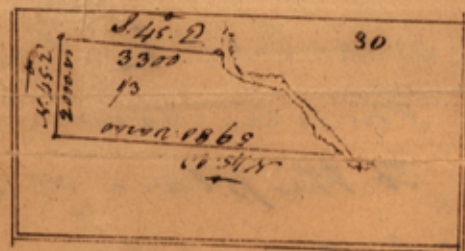 S. 45. E
30
3300
1/3
N. 45. E
5980 varas
N 45. W